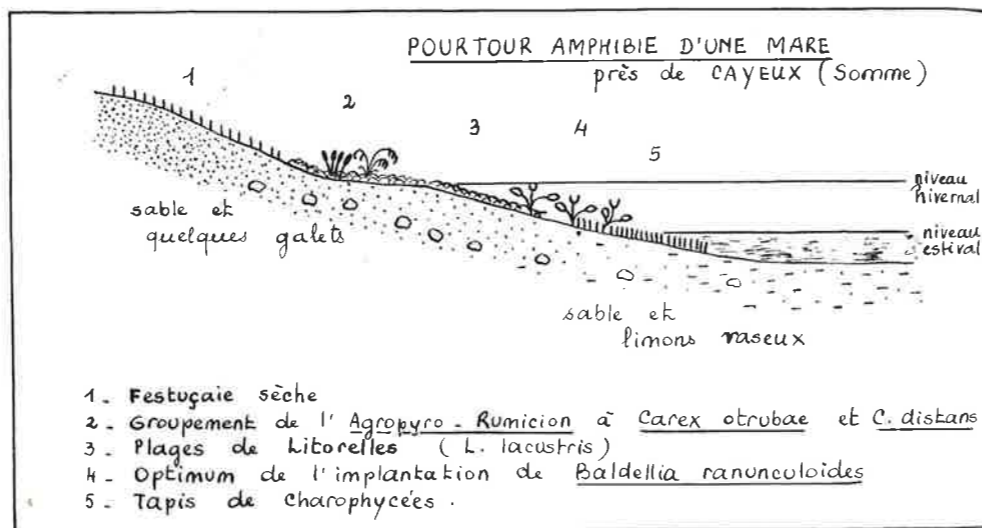 POURTOUR AMPHIBIE D'UNE MARE
près de CAYEUX (Somme)
1
2
3
4
5
niveau
hivernal
niveau
estival
sable et
quelques galets
sable et
limons vaseux
1 - Festuçaie sèche
2 - Groupement de l'Agropyro - Rumicion à Carex otrubae et C. distans
3 - Plages de Litorelles ( L. lacustris )
4 - Optimum de l'implantation de Baldellia ranunculoides
5 - Tapis de charophycées .